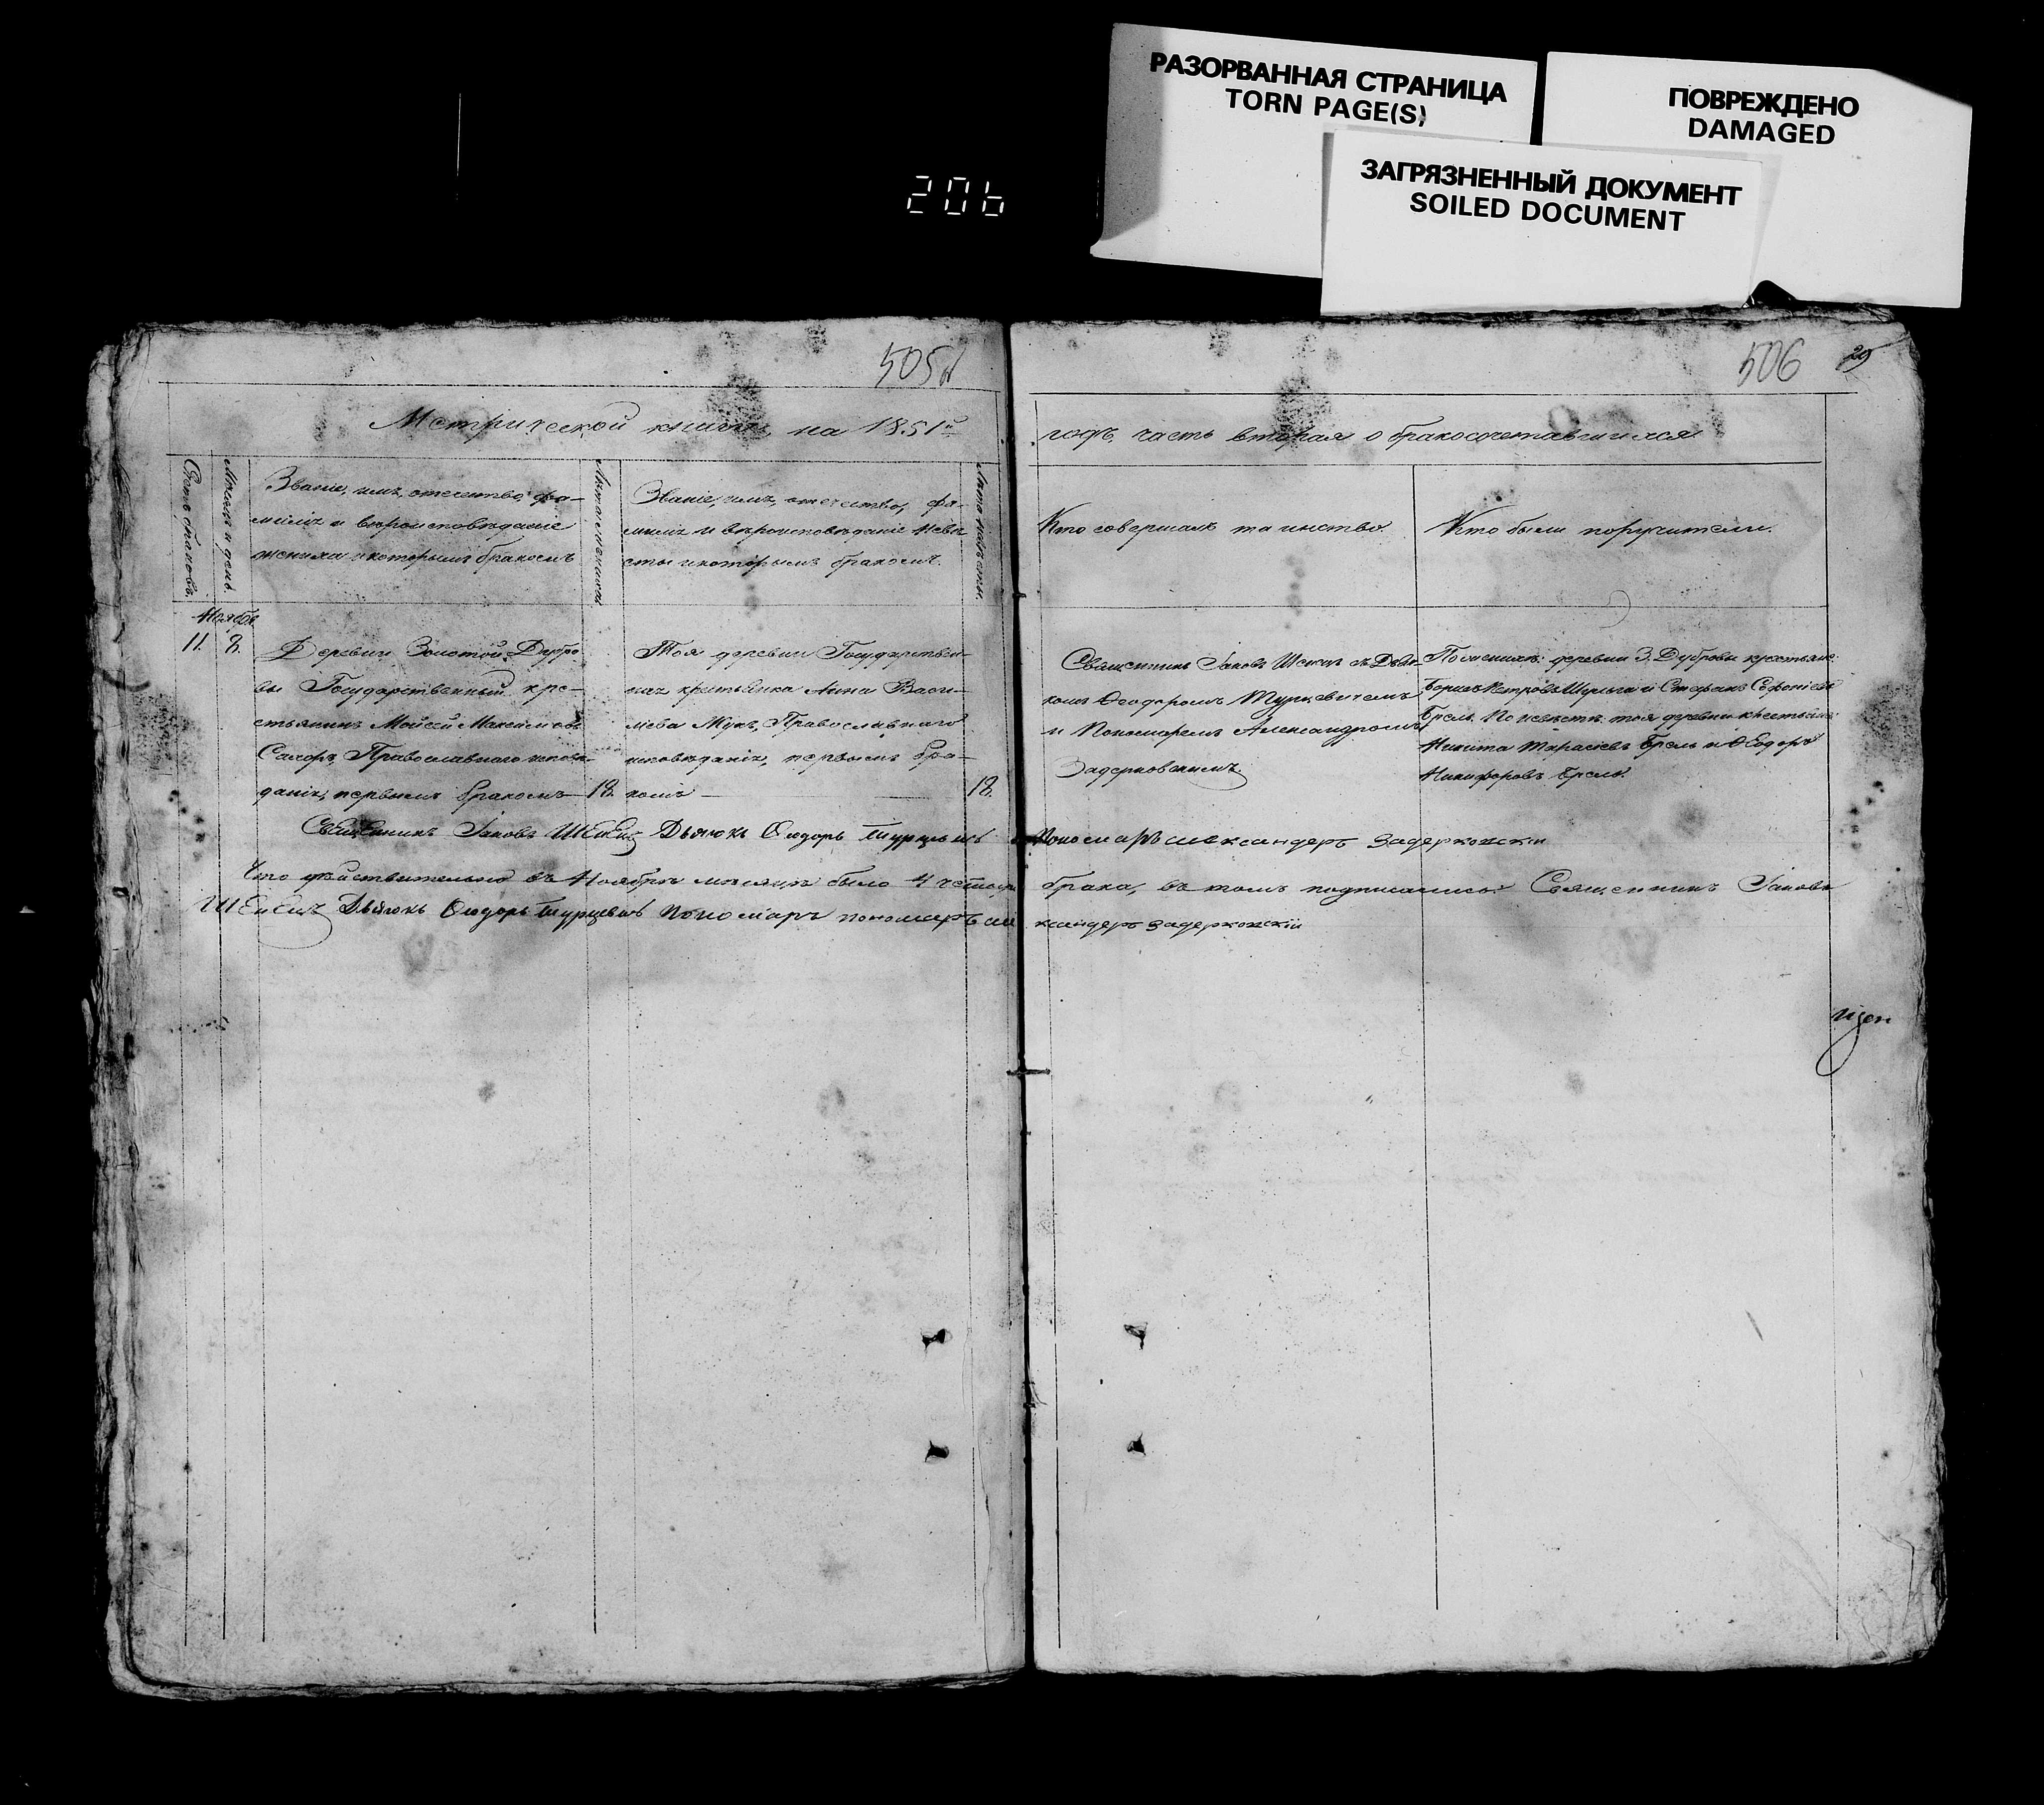 РАЗОРВАННАЯ СТРАНИЦА
TORN PAGE(S)
ПОВРЕЖДЕНО
DAMAGED
ЗАГРЯЗНЕННЫЙ ДОКУМЕНТ
SOILED DOCUMENT
206
505
506
29
Метрической книги, на 1851й
годъ, часть вторая о бракосочетавшихся
Счетъ браковъ.
Мѣсяцъ и день.
Званіе, имя, отечество, фа-
милія и вѣроисповѣданіе
жениха и которымъ бракомъ
Лѣта жениха
Званіе, имя, отечество, фа-
милія и вѣроисповѣданіе невѣ
сты и которымъ бракомъ.
Лѣта невѣсты.
Кто совершалъ таинство.
Кто были поручители.
Ноября
11. 8.
Деревни Золотой Дубро
вы Государственный кре-
стьянинъ Мойсей Максимовъ
Православнаго исповѣ
данія, первымъ бракомъ 18.
Тоя деревни Государствен-
ная крестьянка Анна Васи-
лева Жукъ, Православнаго
исповѣданія, первымъ бра-
комъ 18.
Священникъ Іаковъ Шеметъ съ Дьяч-
комъ Ѳеодоромъ Турцевичемъ
и Пономаремъ Александромъ
Задерковскимъ.
По женихѣ: деревни З. Дубровы крестьяне
Борисъ Петровъ Шульга и Стефанъ Софоніевъ
Брель. По невѣстѣ: тоя деревни крестьяне
Никита Тарасіевъ Брель и Ѳеодоръ
Никифоровъ Брель.
Священникъ Іаковъ Шеметъ Дьячокъ Ѳиодоръ Турцевичъ
Пономаръ александеръ Задерковскіи
Что дѣйствительно въ Ноябрѣ мѣсяцѣ было 4 четыре
брака, въ томъ подписались: Священникъ Іаковъ
Шеметъ Дьячокъ Ѳиодоръ Турцевичъ Пономаръ пономаръ але
ксандеръ Задерковскіи